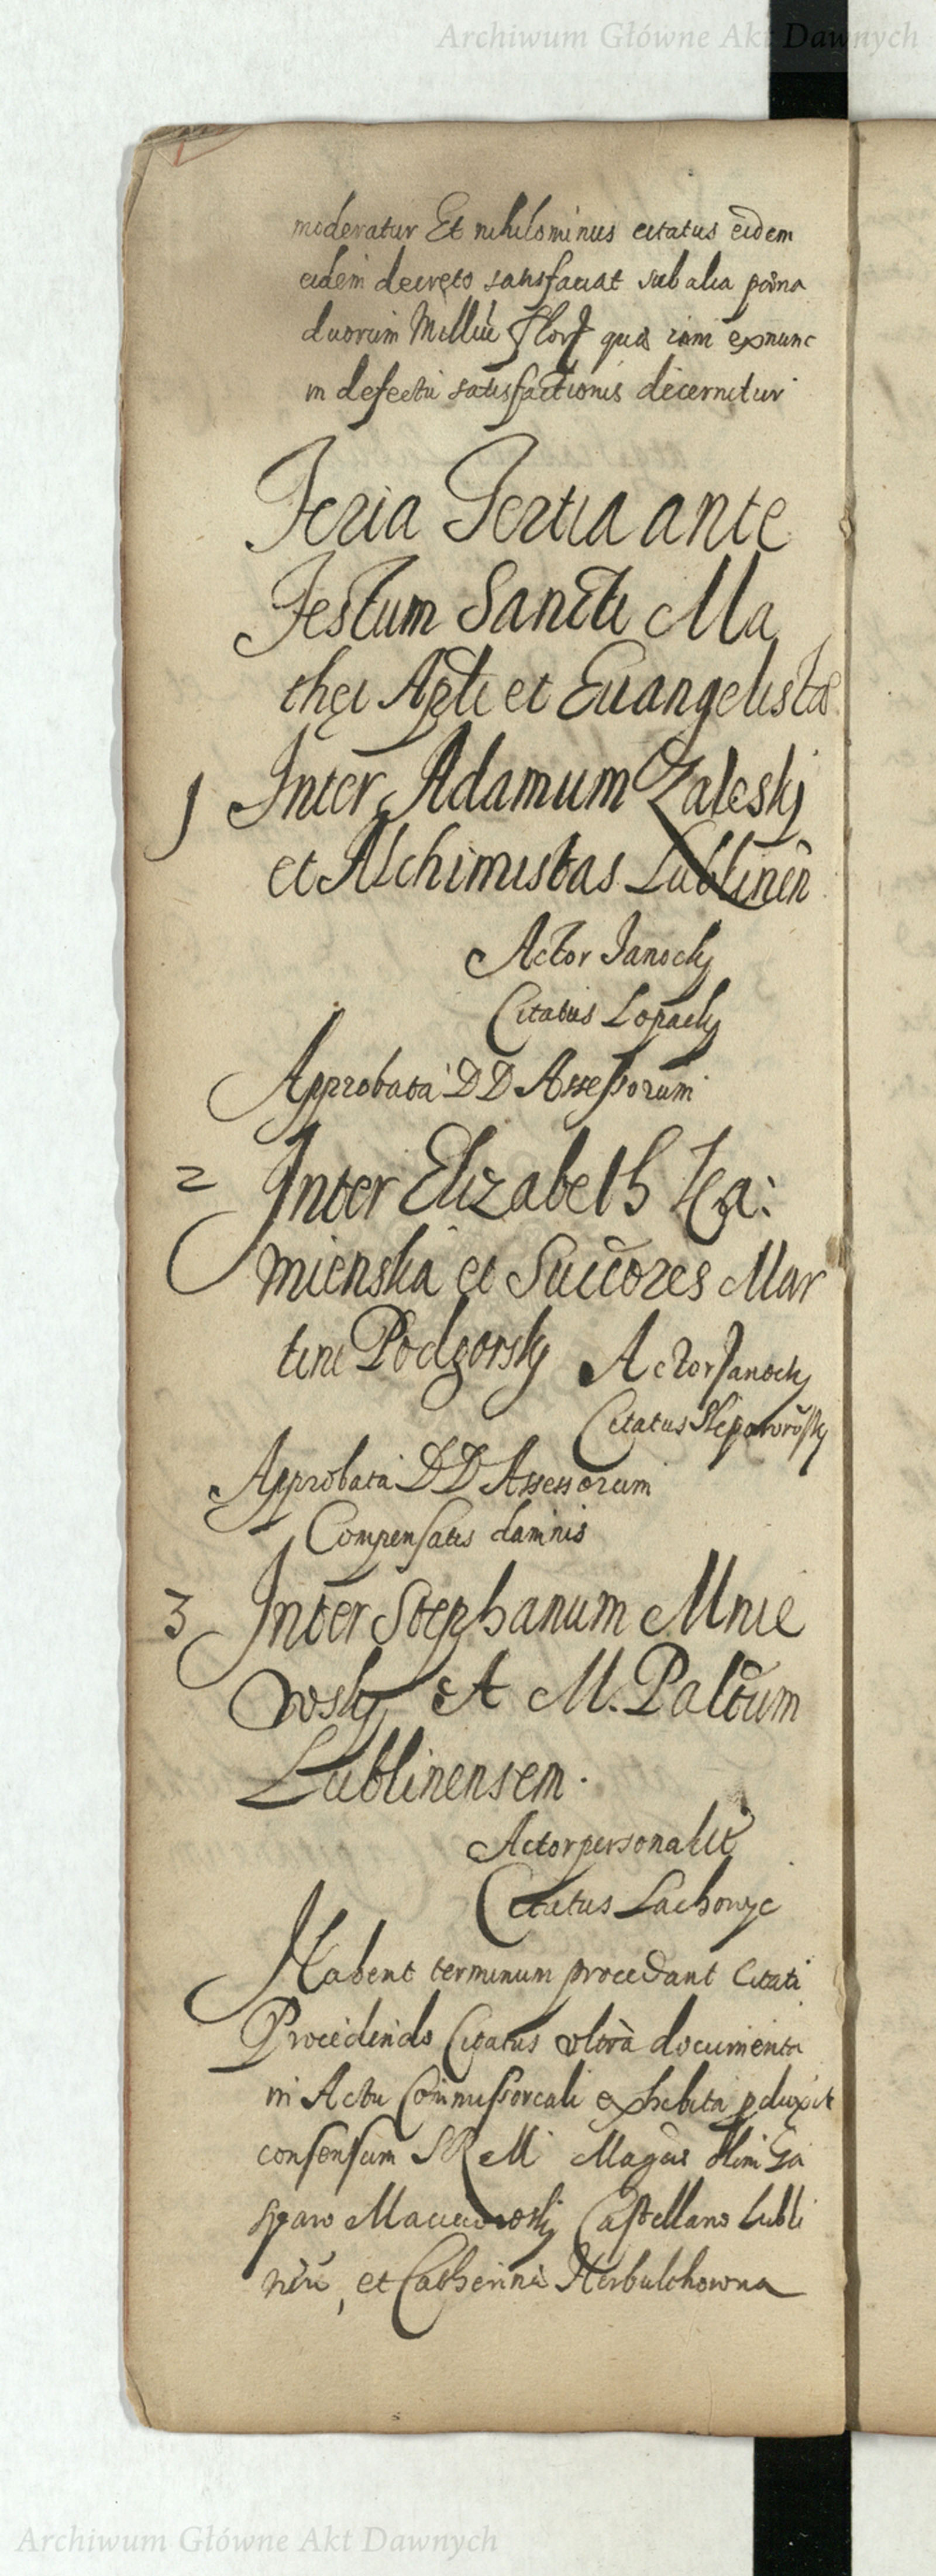 Archiwum Główne Akt Dawnych
moderatur Et nihilominus citatus eidem
eidem decreto satisfaciat sub alia pœna
duorum Milliū Flor quæ iam exnunc
in defectu satisfactionis decernitur
Feria Tertia ante
Festum Sancti Ma
thęi Apłi et Euangelistæ
1 Inter Adamum Zalesky
et Alchimistas Lublinēn
Actor Janocky
Citatus Lopacky
Approbata DD Assessorum
2 Inter Elizabeth Ka:
mienska et Succōres Mar
tini Podgorsky Actor Janocky
Citatus
Approbata DD Assessorum
Compensatis damnis
3 Inter Stephanum Mnie
wsky et M. Palūm
Lublinensem.
Actor personalit
Citatus Lachowyc
Habent terminum procedant Citati
Procedendo Citatus vltrà documenta
in Actu Commissoreali exhibita pduxit
consensum SRM Magcis olim Ga
sparo Macieiowsky Castellano Lubli
nēn, et Catherinæ Herbulthowna
Archiwum Główne Akt Dawnych